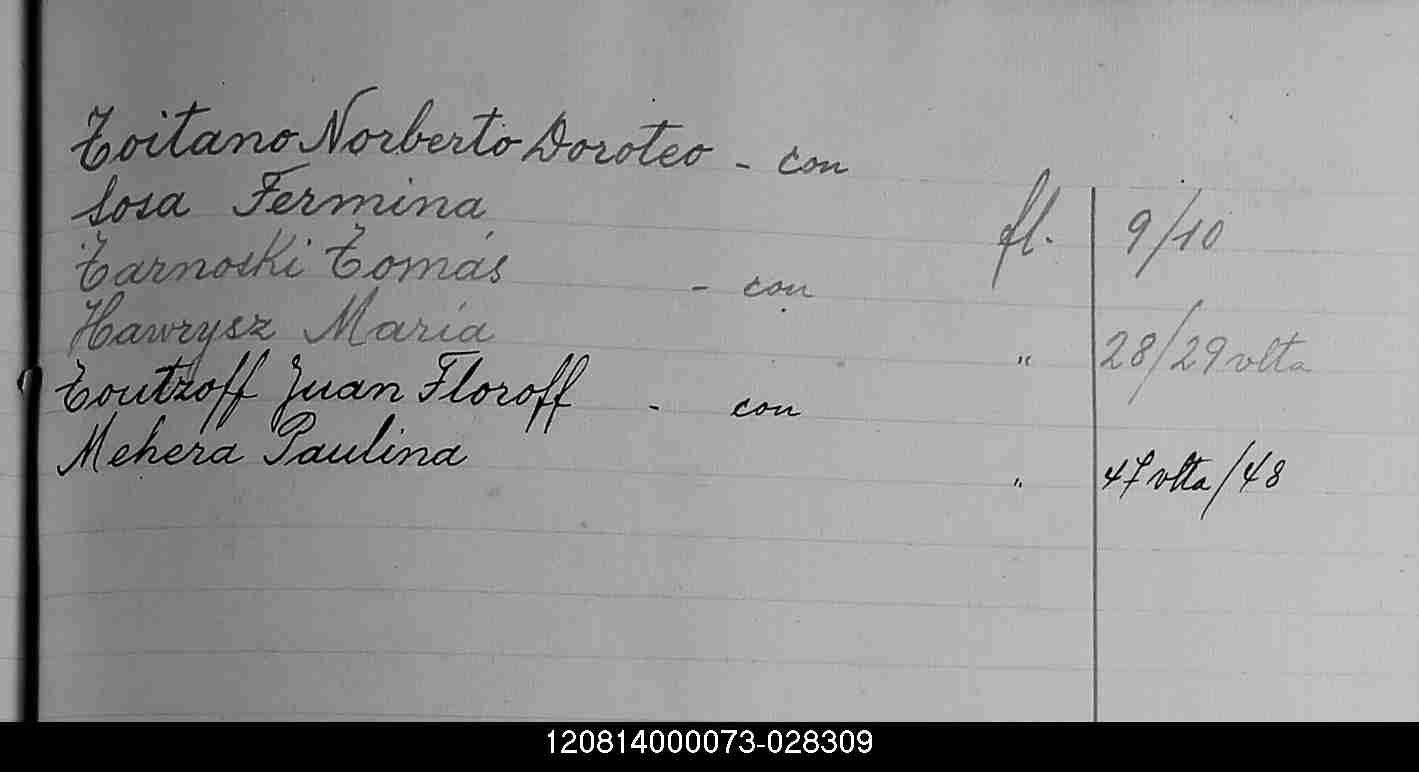 Toitano Norberto Doroteo - con
Sosa Fermina fl. 9/10
Tarnoski Tomás - con
Hawrysz María " 28/29 vlta
Toutzoff Juan Floroff - con
Mehera Paulina " 47 vlta/48
120814000073-028309